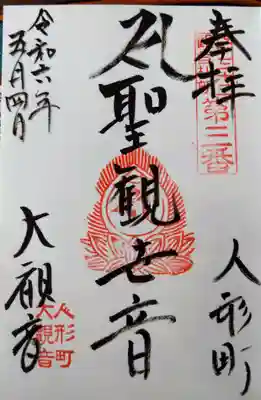 奉拝
第三番
人形町
聖観世音
令和六年
五月四日
大観音
人形町
大観音